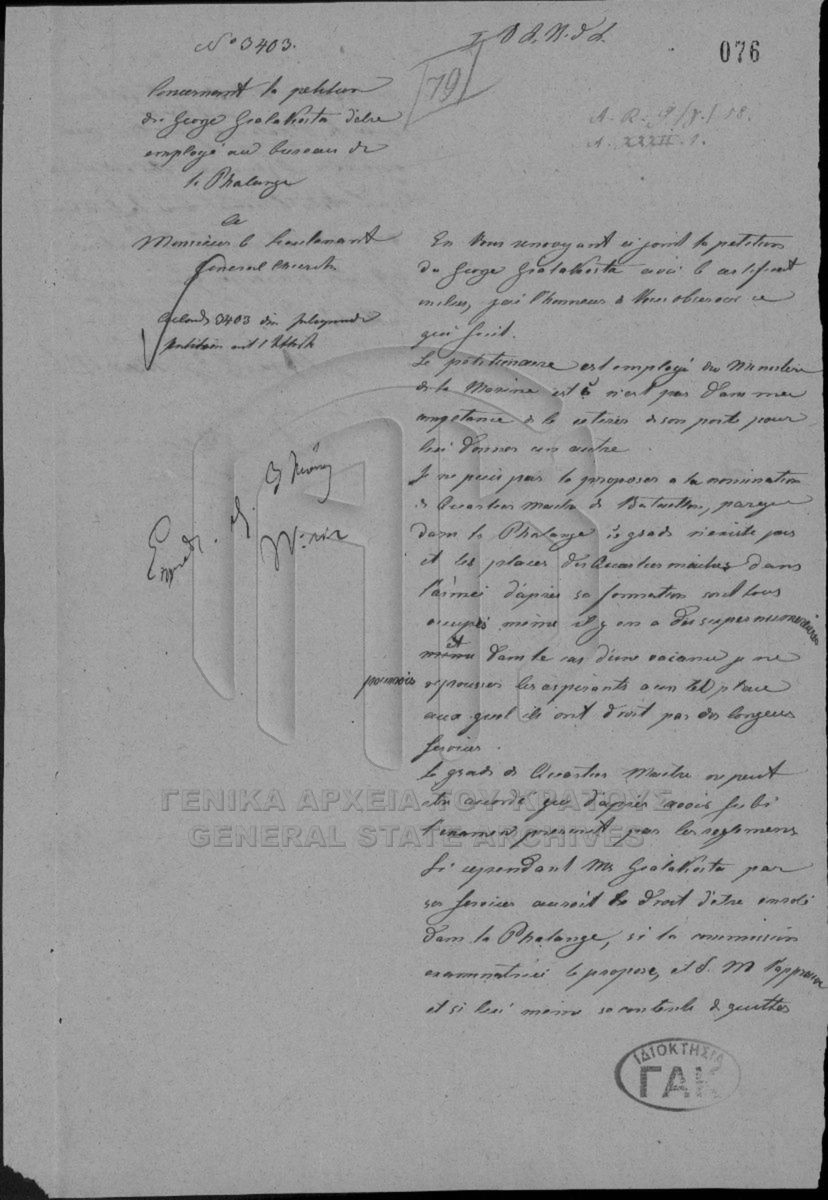 No 3403.
076
79
Concernant la petition
du George Gralakosta d'etre
employé au bureau de
la Phalange
a
Monsieur le lieutenant
General Church
A. R.
A. XXXII. 1.
En Vous renvoyant ci joint la petition
du George Gralakosta avec le certificat
inclus, j'ai l'honneur de Vous observer ce
qui suit.
Le petitionnaire est employé du Ministère
de la Marine est n'est pas dans ma
competance de le retirer de son poste pour
lui donner un autre.
Je ne puis pas le proposer a la nomination
de Quartier maitre de Bataillon, parceque
dans la Phalange ce grade n'existe pas
et les places des Quartier maitres dans
l'armée d'après sa formation sont tous
occupés même il y en a des supernumeraires
et
même dans le cas d'une vacance je ne
pourrois repousser les aspirants a un tel place
aux quel ils ont droit par des longues
services.
Le grade de Quartier Maitre ne peut
etre accordé que d'après avoir subi
l'examen prescrit par les reglemens
Si cependant Mr Gralakosta par
ses services auroit le droit d'etre enrolé
dans la Phalange, si la commission
examinatrice le propose, et S. M. l'approuve
et si lui meme se contente de quitter
ΓΕΝΙΚΑ ΑΡΧΕΙΑ ΤΟΥ ΚΡΑΤΟΥΣ
GENERAL STATE ARCHIVES
ΙΔΙΟΚΤΗΣΙΑ
ΓΑΚ